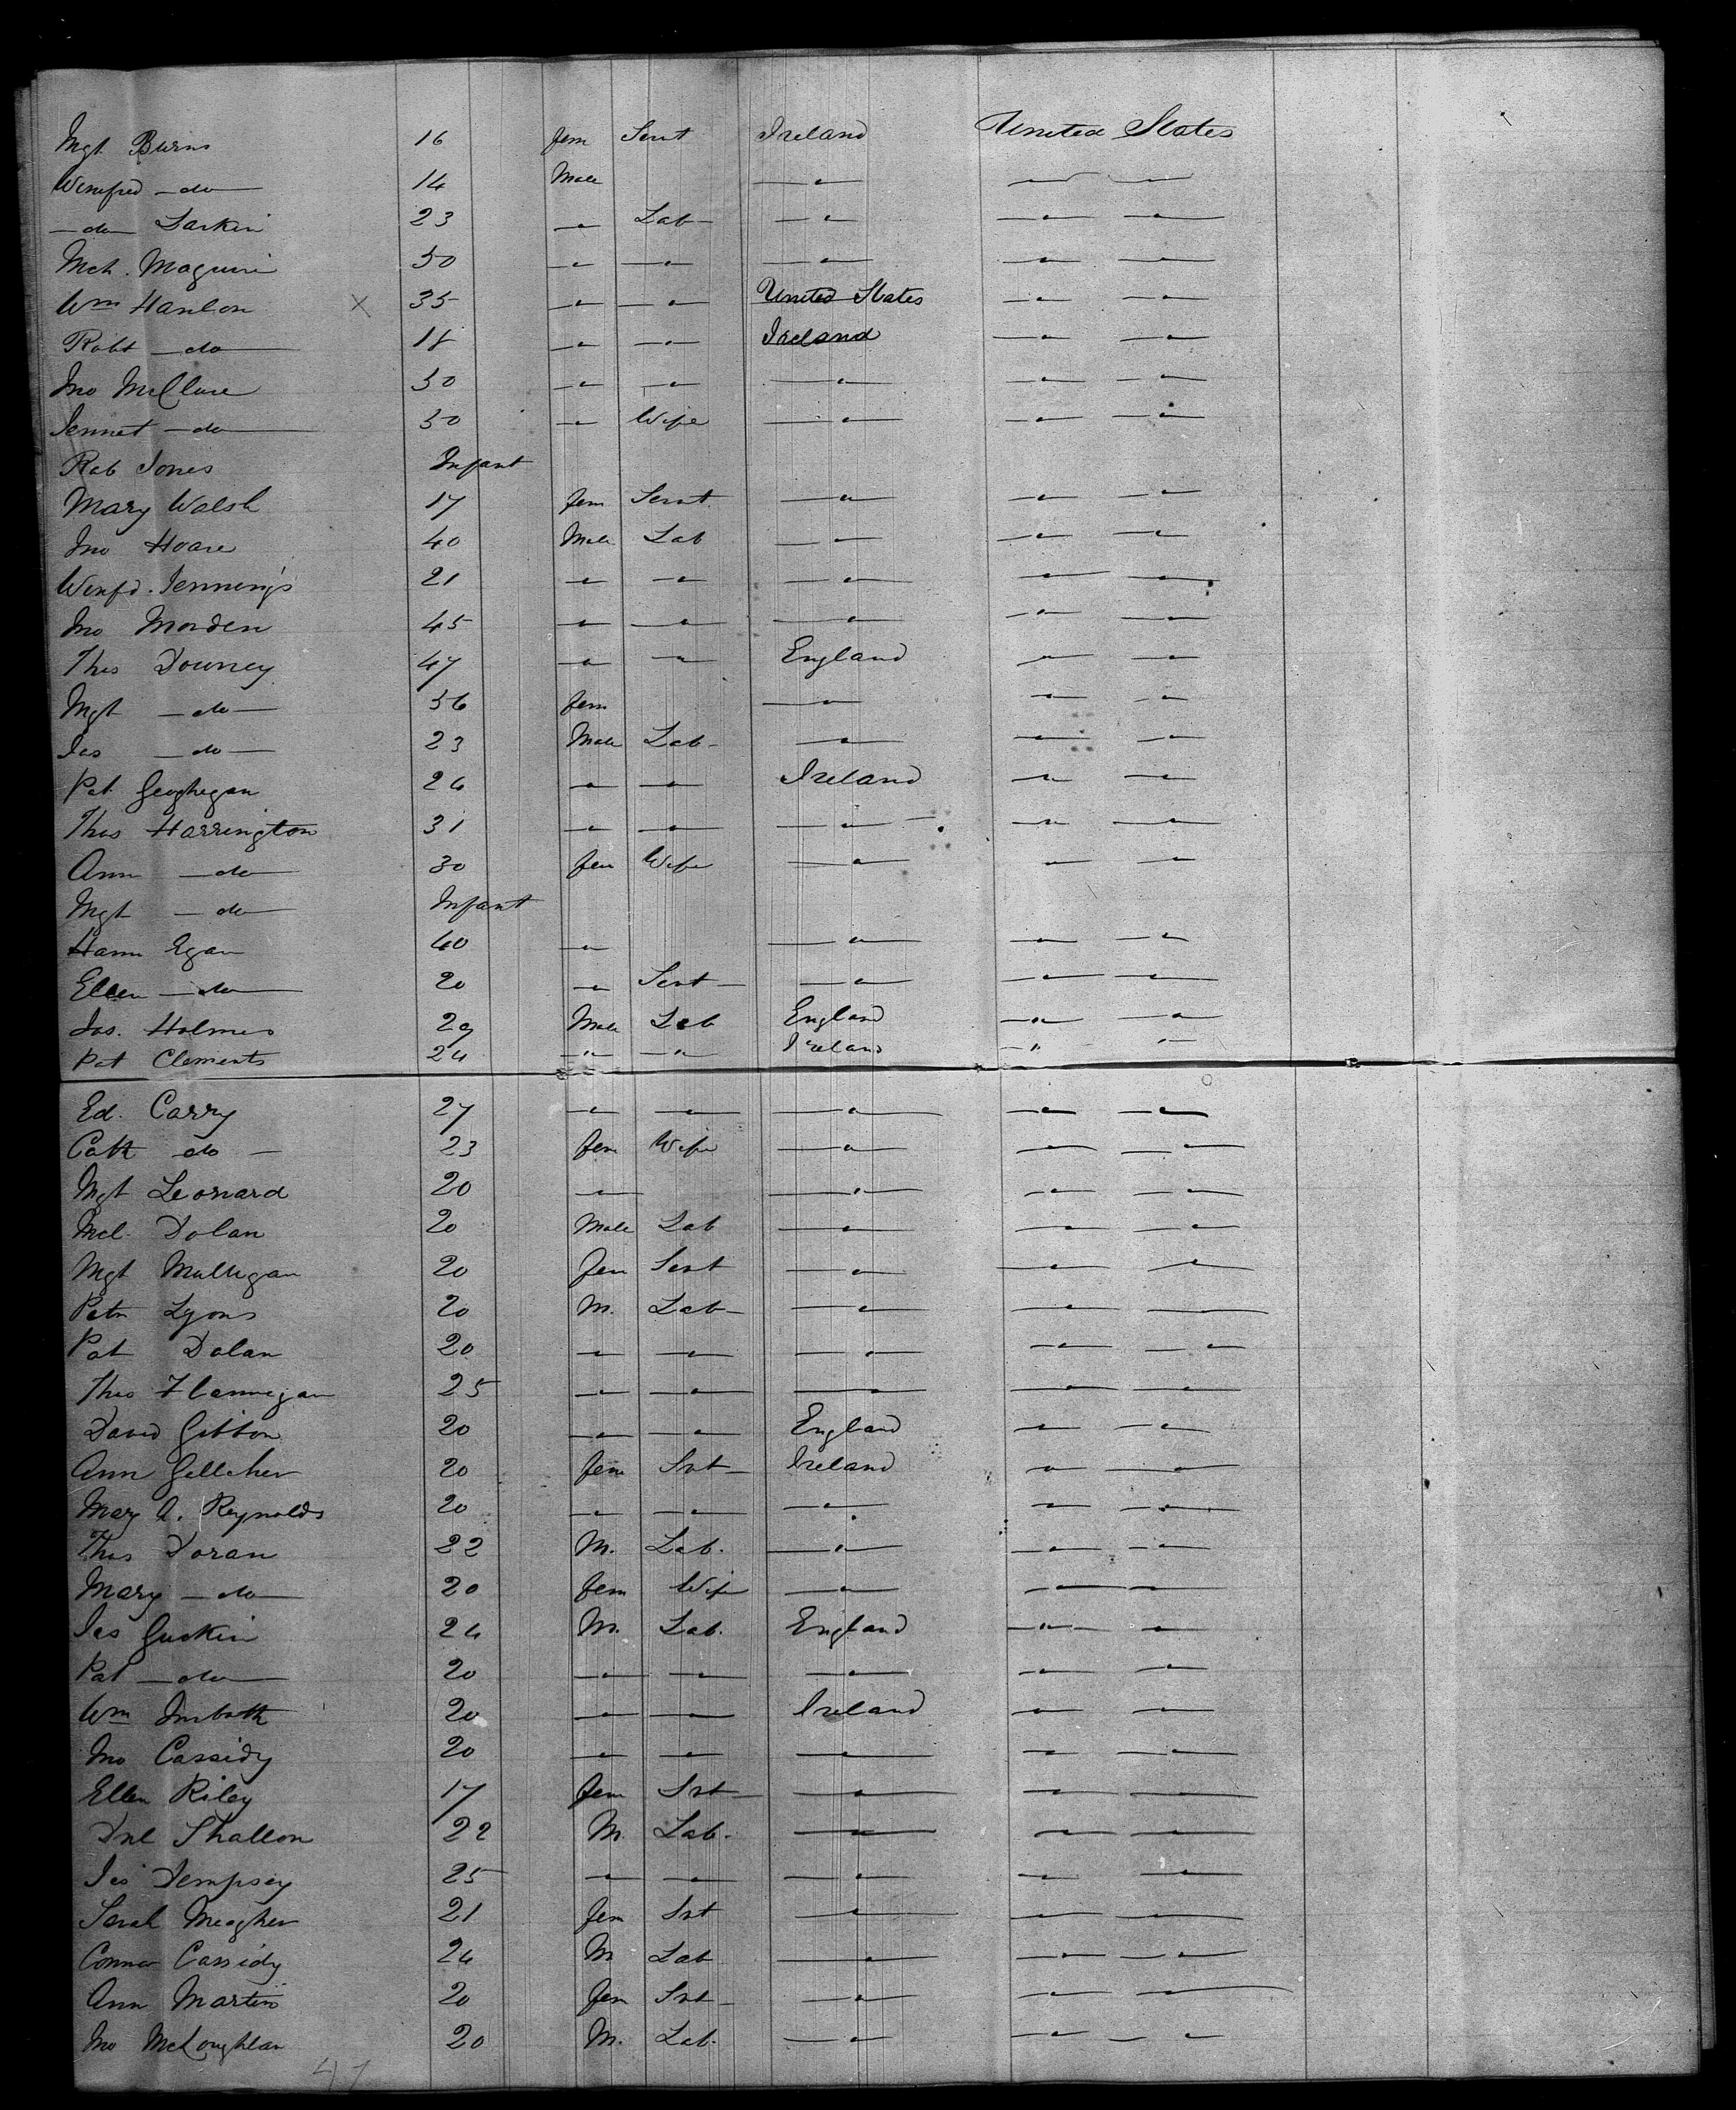 Mgt. Burns 16 fem Servt Ireland United States
Winefred - do - 14 Male - " - - " - - " -
- do - Larkin 23 - " - Lab - " - - " - - " -
Mch. Maguire 50 - " - - " - - " - - " - - " -
Wm Hanlon × 35 - " - - " - United States - " - - " -
Robt - do - 18 - " - - " - Ireland - " - - " -
Jno McClure 50 - " - - " - - " - - " - - " -
Jennet - do - 50 - " - Wife - " - - " - - " -
Rob Jones Infant
Mary Walsh 17 fem Servt - " - - " - - " -
Jno Hoare 40 Male Lab - " - - " - - " -
Winfd. Jennings 21 - " - - " - - " - - " - - " -
Jno Morden 45 - " - - " - - " - - " - - " -
Thos Downey 47 - " - - " - England - " - - " -
Mgt - do - 56 fem - " - - " - - " -
Jas - do - 23 Male Lab - " - - " - - " -
Pat. Geoghegan 24 - " - - " - Ireland - " - - " -
Thos Harrington 31 - " - - " - - " - - " - - " -
Ann - do - 30 fem Wife - " - - " - - " -
Mgt - do - Infant
Hann Egan 40 - " - - " - - " - - " -
Ellen - do - 20 - " - Sert - " - - " - - " -
Jas. Holmes 29 Male Lab England - " - - " -
Pat Clements 24 - " - - " - Ireland - " - - " -
Ed. Carry 27 - " - - " - - " - - " - - " -
Cath do - 23 fem Wife - " - - " - - " -
Mgt Leonard 20 - " - - " - - " - - " -
Mcl. Dolan 20 Male Lab - " - - " - - " -
Mgt Mulligan 20 fem Sert - " - - " - - " -
Petr Lyons 20 M. Lab - " - - " - - " -
Pat Dolan 20 - " - - " - - " - - " - - " -
Thos Flannigan 25 - " - - " - - " - - " - - " -
David Gibbon 20 - " - - " - England - " - - " -
Ann Gelleher 20 fem Svt Ireland - " - - " -
Mary A. Reynolds 20 - " - - " - - " - - " - - " -
Thos Doran 22 M. Lab. - " - - " - - " -
Mary - do - 20 fem Wife - " - - " - - " -
Jas Guskin 24 M. Lab. England - " - - " -
Pat - do - 20 - " - - " - - " - - " - - " -
Wm 20 - " - - " - Ireland - " - - " -
Jno Cassidy 20 - " - - " - - " - - " - - " -
Ellen Riley 17 fem Svt - " - - " - - " -
Dnl Shallon 22 M. Lab. - " - - " - - " -
Jas Dempsey 25 - " - - " - - " - - " - - " -
Sarah Meagher 21 fem Svt - " - - " - - " -
Connor Cassidy 24 M Lab - " - - " - - " -
Ann Martin 20 fem Svt - " - - " - - " -
Jno McLoughlan 20 M. Lab. - " - - " - - " -
47